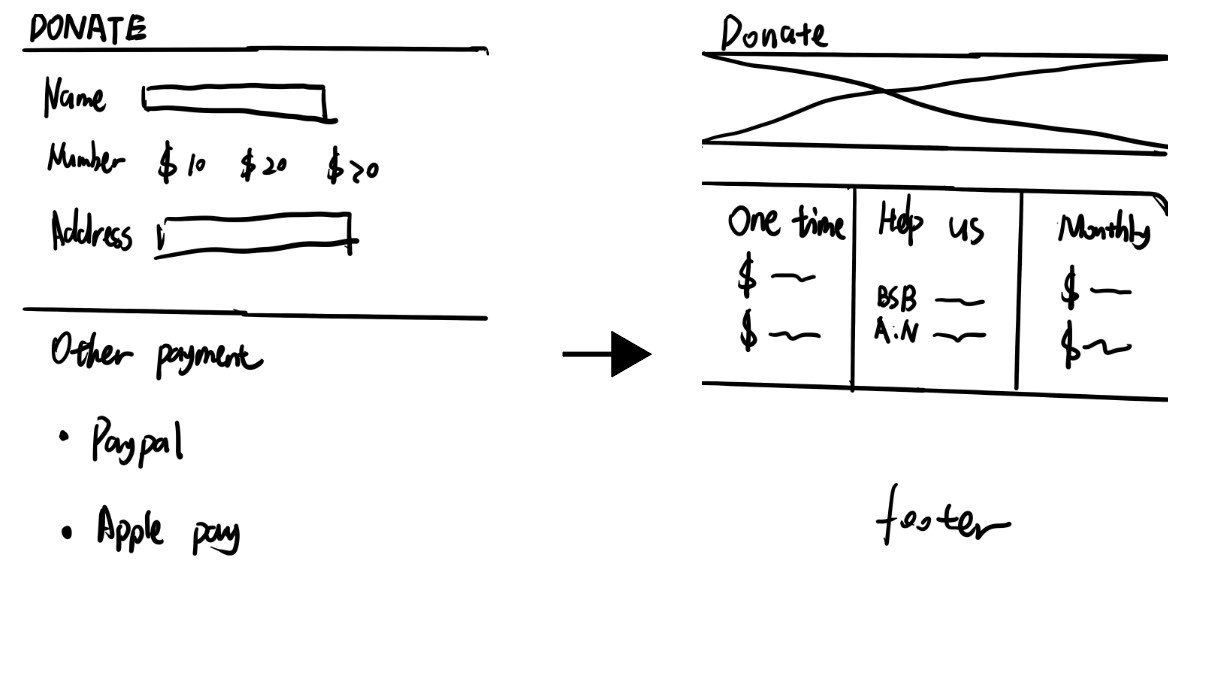 DONATE
Name
Number $10 $20 $>0
Address
Other payment
• Paypal
• Apple pay
Donate
One time
$
$
Help us
BSB
A.N
Monthly
$
$
footer